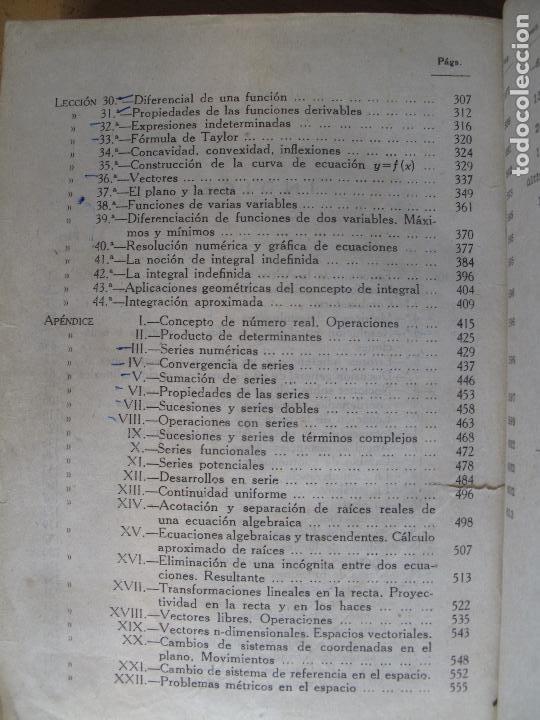 Págs.
LECCIÓN 30.ª—Diferencial de una función ... ... ... ... ... ... ... 307
» 31.ª—Propiedades de las funciones derivables ... ... ... ... 312
» 32.ª—Expresiones indeterminadas ... ... ... ... ... ... ... 316
» 33.ª—Fórmula de Taylor ... ... ... ... ... ... ... ... ... 320
» 34.ª—Concavidad, convexidad, inflexiones ... ... ... ... ... 324
» 35.ª—Construcción de la curva de ecuación y=f(x) ... ... ... 329
» 36.ª—Vectores ... ... ... ... ... ... ... ... ... ... ... 337
» 37.ª—El plano y la recta ... ... ... ... ... ... ... ... ... 349
» 38.ª—Funciones de varias variables ... ... ... ... ... ... 361
39.ª—Diferenciación de funciones de dos variables. Máxi-
mos y mínimos ... ... ... ... ... ... ... ... ... 370
» 40.ª—Resolución numérica y gráfica de ecuaciones ... ... ... 377
» 41.ª—La noción de integral indefinida ... ... ... ... ... ... 384
» 42.ª—La integral indefinida ... ... ... ... ... ... ... ... 396
» 43.ª—Aplicaciones geométricas del concepto de integral ... ... 404
» 44.ª—Integración aproximada ... ... ... ... ... ... ... ... 409
APÉNDICE I.—Concepto de número real. Operaciones ... ... ... 415
» II.—Producto de determinantes ... ... ... ... ... ... 425
» III.—Series numéricas ... ... ... ... ... ... ... ... 429
» IV.—Convergencia de series ... ... ... ... ... ... ... 437
» V.—Sumación de series ... ... ... ... ... ... ... ... 446
» VI.—Propiedades de las series ... ... ... ... ... ... 453
» VII.—Sucesiones y series dobles ... ... ... ... ... ... 458
» VIII.—Operaciones con series ... ... ... ... ... ... ... 463
» IX.—Sucesiones y series de términos complejos ... ... ... 468
» X.—Series funcionales ... ... ... ... ... ... ... ... 472
» XI.—Series potenciales ... ... ... ... ... ... ... ... 478
» XII.—Desarrollos en serie ... ... ... ... ... ... ... 484
» XIII.—Continuidad uniforme ... ... ... ... ... ... ... 496
» XIV.—Acotación y separación de raíces reales de
una ecuación algebraica ... ... ... ... ... ... 498
» XV.—Ecuaciones algebraicas y trascendentes. Cálculo
aproximado de raíces ... ... ... ... ... ... ... 507
» XVI.—Eliminación de una incógnita entre dos ecua-
ciones. Resultante ... ... ... ... ... ... ... 513
» XVII.—Transformaciones lineales en la recta. Proyec-
tividad en la recta y en los haces ... ... ... ... 522
» XVIII.—Vectores libres. Operaciones ... ... ... ... ... 535
» XIX.—Vectores n-dimensionales. Espacios vectoriales. 543
» XX.—Cambios de sistemas de coordenadas en el
plano. Movimientos ... ... ... ... ... ... ... 548
» XXI.—Cambio de sistema de referencia en el espacio. 552
» XXII.—Problemas métricos en el espacio ... ... ... ... 555
todocoleccion.net